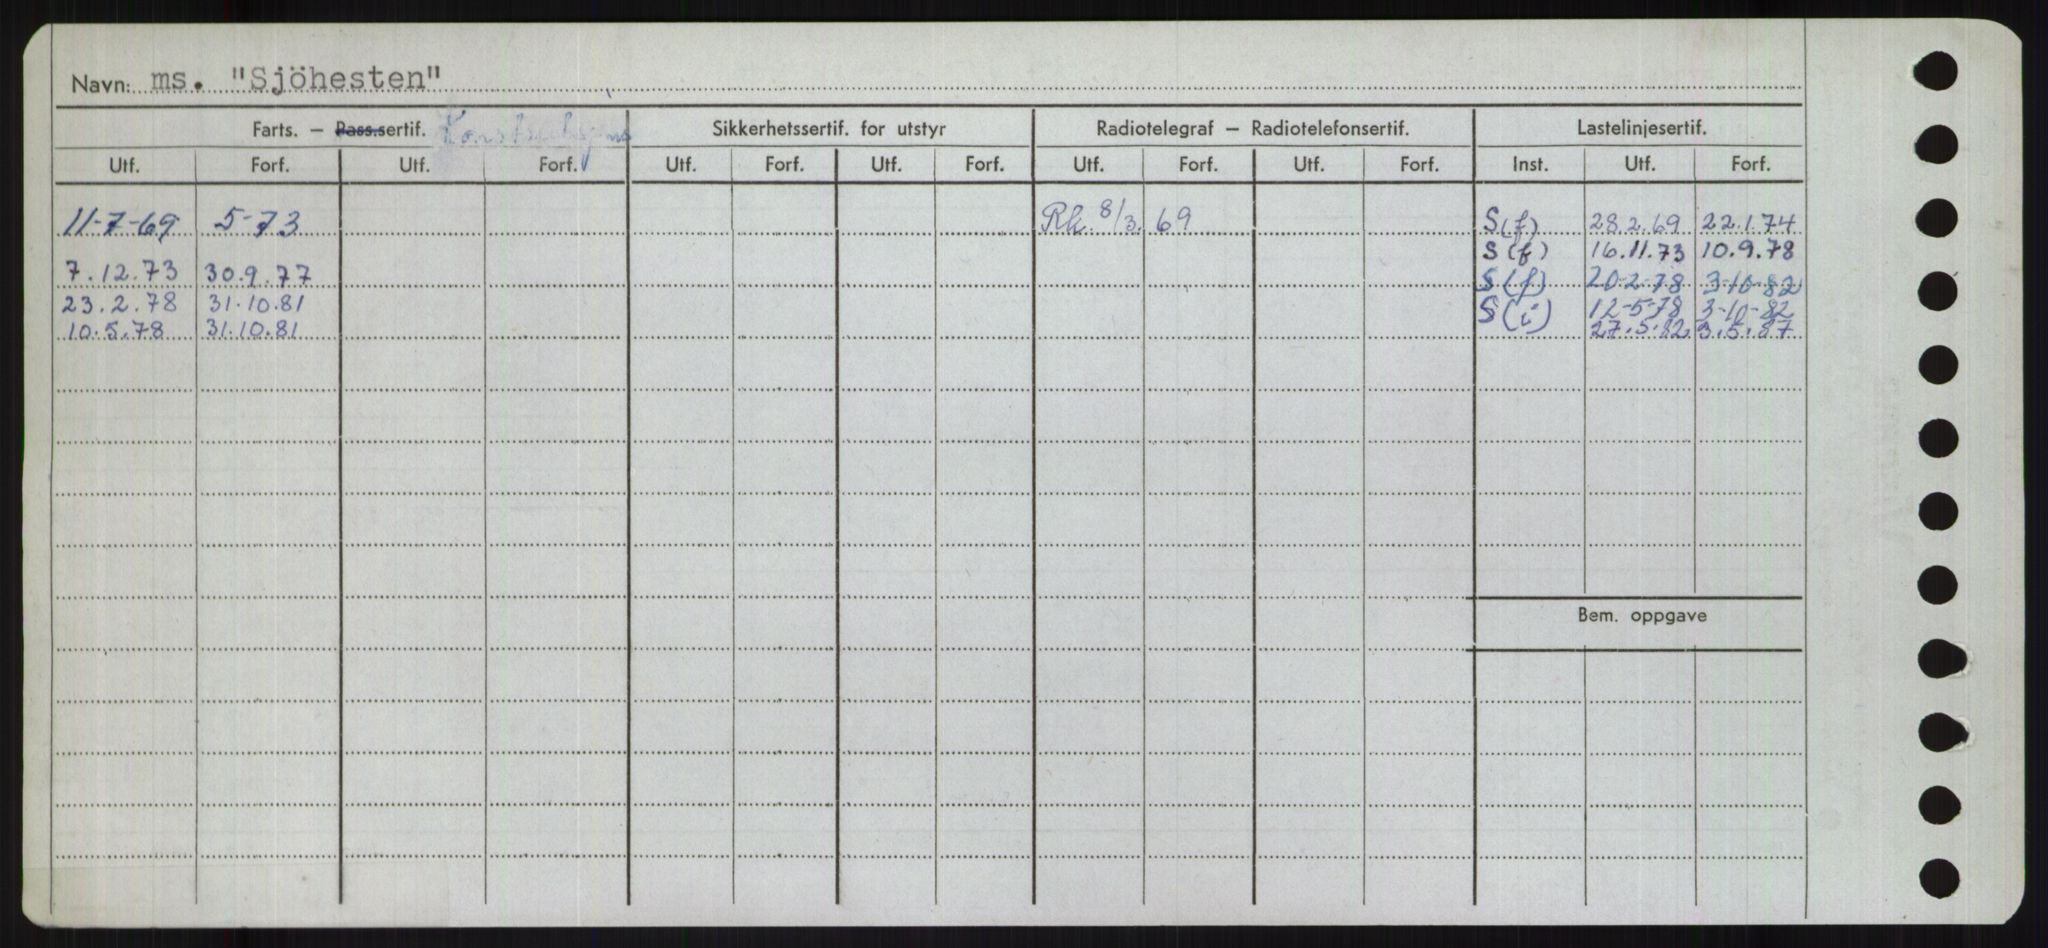 Navn: ms. "Sjöhesten"
Farts. – Pass.sertif. Sikkerhetssertif. for utstyr Radiotelegraf – Radiotelefonsertif. Lastelinjesertif.
Utf. Forf. Utf. Forf. Utf. Forf. Utf. Forf. Utf. Forf. Utf. Forf. Inst. Utf. Forf.
11-7-69 5-73 Rk. 8/3. 69 S(f) 28.2.69 22.1.74
S(f) 16.11.73 10.9.78
7.12.73 30.9.77 S(f) 20-2-78 3-10-82
23.2.78 31.10.81 S(i) 12-5-78 3-10-82
10.5.78 31.10.81 27.5.82 3.5.87
Bem. oppgave